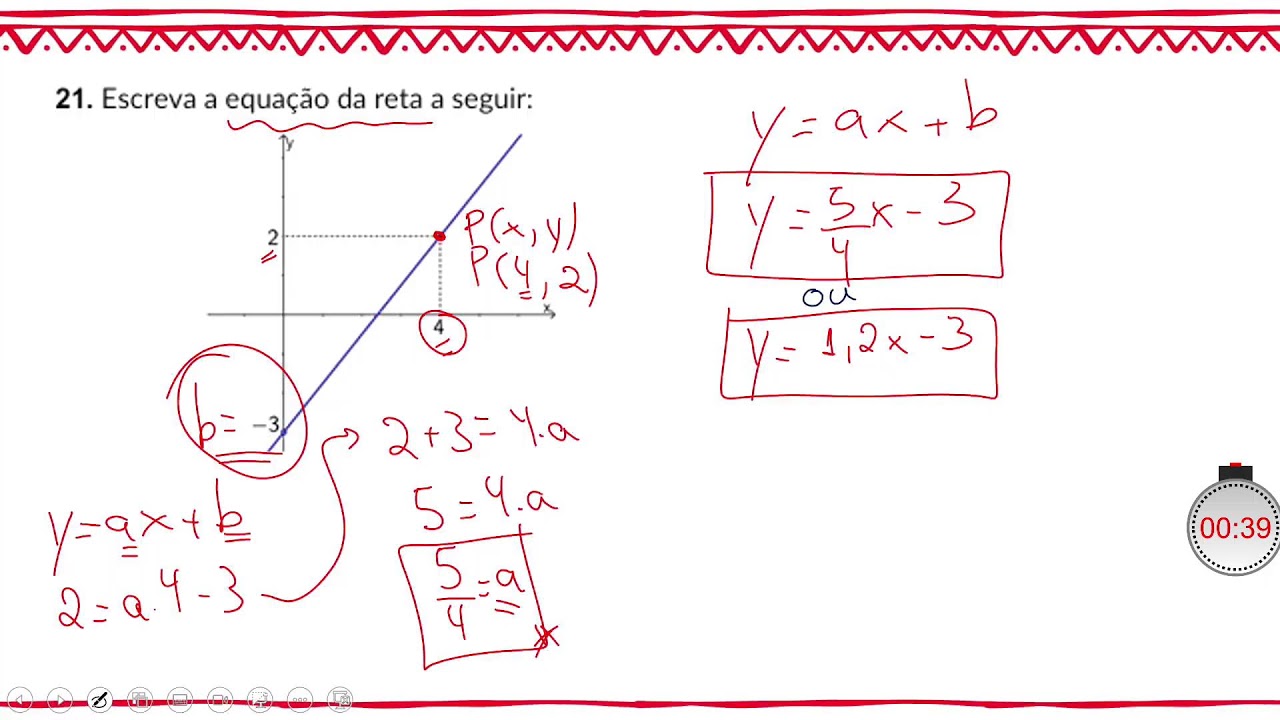 21. Escreva a equação da reta a seguir:
y
2
P(x, y)
P(4, 2)
x
4
b= −3
y = ax + b
2 = a.4 - 3
2 + 3 = 4.a
5 = 4.a
5/4 = a
y = ax + b
y = 5/4 x - 3
ou
y = 1,2x - 3
00:39